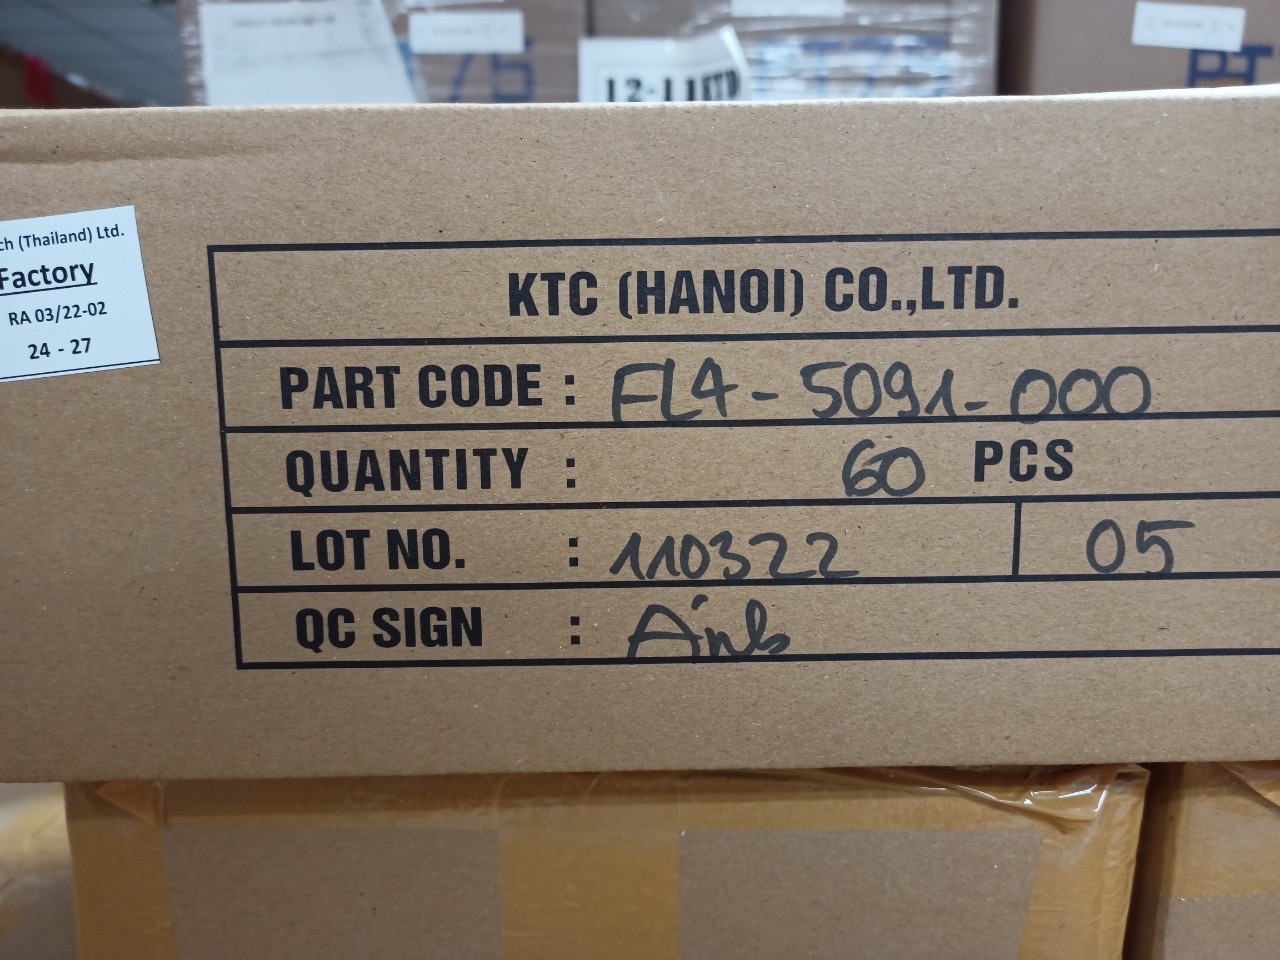 12-11ETD
ch (Thailand) Ltd.
Factory
RA 03/22-02
24 - 27
KTC (HANOI) CO.,LTD.
PART CODE : FL4-5091-000
QUANTITY : 60 PCS
LOT NO. : 110322 05
QC SIGN : Ánh